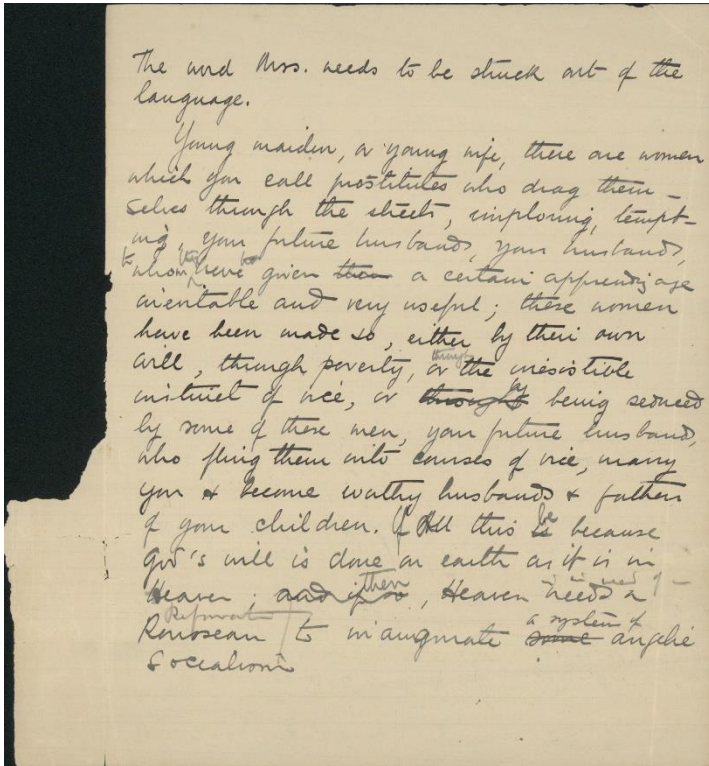 The word Mrs. needs to be struck out of the
language.
Young maiden, or young wife, there are women
which you call prostitutes who drag them-
selves through the streets, imploring, tempt-
ing, your future husbands, your husbands,
to whom they have given them a certain apprenticeage
inevitable and very useful; these women
have been made so, either by their own
will, through poverty, or through the irresistible
instinct of vice, or through by being seduced
by some of these men, your future husbands,
who fling them into courses of vice, marry
you & become worthy husbands & fathers
of your children. If All this is be because
God's will is done on earth as it is in
Heaven; and if so then, Heaven needs is in need of a
Rousseau Reformator to inaugurate some a system of angelic
Socialism